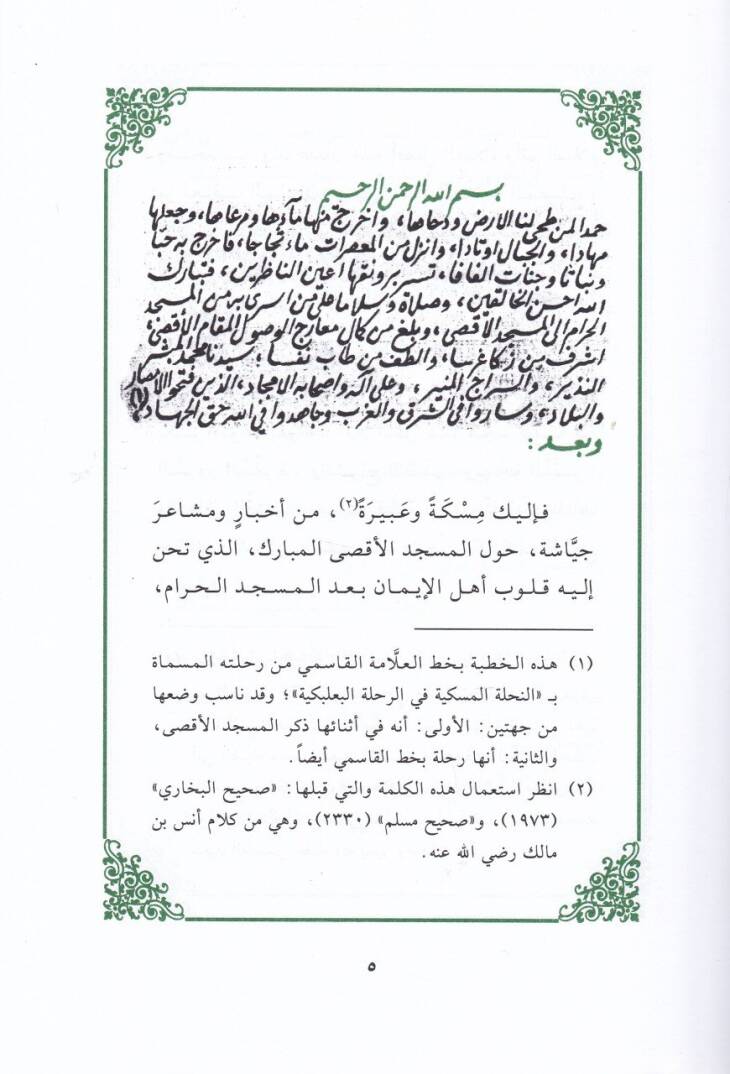 بسم الله الرحمن الرحيم
حمدا لمن طحى لنا الارض ودحاها، واخرج منها مآءها ومرعاها، وجعلها
مهادا، والجبال اوتادا، وانزل من المعصرات ماء ثجاجا، فاخرج به حبا
ونباتا وجنات الفافا، تسر برونقها اعين الناظرين، فتبارك
الله احسن الخالقين، وصلاة وسلاما على من اسرى به من المسجد
الحرام الى المسجد الاقصى، وبلغ من كمال معارج الوصول المقام الأقصى،
اشرف من زكا غرسا، والطف من طاب نفسا، سيدنا محمد المبشر
النذير، والسراج المنير، وعلى آله واصحابه الامجاد، الذين فتحوا الامصار
والبلاد، وساروا في الشرق والغرب وجاهدوا في الله حق الجهاد (١)
وبعد:
فإليك مِسْكَةً وعَبيرَةً(٢)، من أخبارٍ ومشاعرَ
جيَّاشة، حول المسجد الأقصى المبارك، الذي تحن
إليه قلوب أهل الإيمان بعد المسجد الحرام،
(١) هذه الخطبة بخط العلَّامة القاسمي من رحلته المسماة
بـ «النحلة المسكية في الرحلة البعلبكية»؛ وقد ناسب وضعها
من جهتين: الأولى: أنه في أثنائها ذكر المسجد الأقصى،
والثانية: أنها رحلة بخط القاسمي أيضاً.
(٢) انظر استعمال هذه الكلمة والتي قبلها: «صحيح البخاري»
(١٩٧٣)، و«صحيح مسلم» (٢٣٣٠)، وهي من كلام أنس بن
مالك رضي الله عنه.
٥